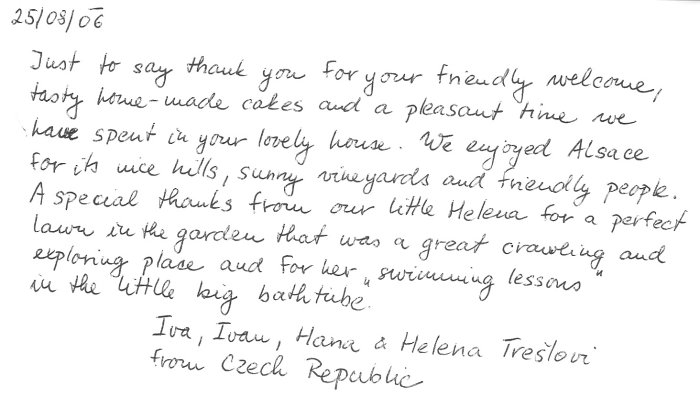 25/08/06
Just to say thank you for your friendly welcome,
tasty home-made cakes and a pleasant time we
have spent in your lovely house. We enjoyed Alsace
for its nice hills, sunny vineyards and friendly people.
A special thanks from our little Helena for a perfect
lawn in the garden that was a great crawling and
exploring place and for her „swimming lessons“
in the little big bathtube.
Iva, Ivan, Hana & Helena Trešlovi
from Czech Republic